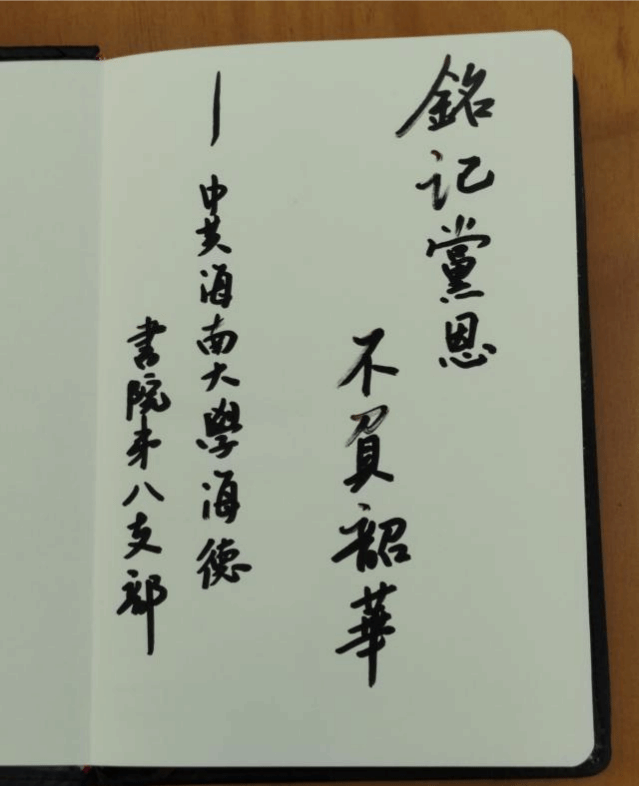 銘记黨恩
不負韶華
—中共海南大學海德
書院第八支部